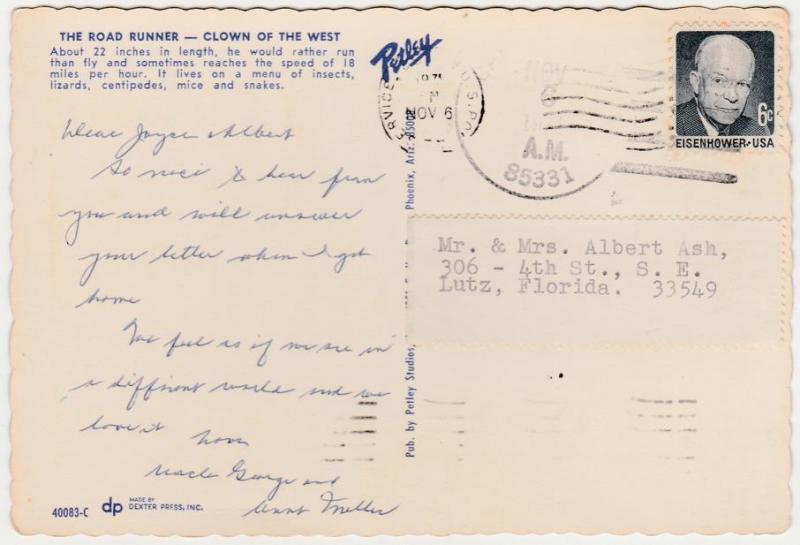 THE ROAD RUNNER — CLOWN OF THE WEST
About 22 inches in length, he would rather run
than fly and sometimes reaches the speed of 18
miles per hour. It lives on a menu of insects,
lizards, centipedes, mice and snakes.
Petley
Dear Joyce Albert
So nice to hear from
you and will answer
your letter when I get
home
We feel as if we are in
a different world and we
love it
Uncle George and
Aunt
40083-C
dp MADE BY
DEXTER PRESS, INC.
Pub. by Petley Studios,
Phoenix, Ariz. 85008
NOV 6
NOV
6
A.M.
85331
6c
EISENHOWER·USA
Mr. & Mrs. Albert Ash,
306 - 4th St., S. E.
Lutz, Florida. 33549